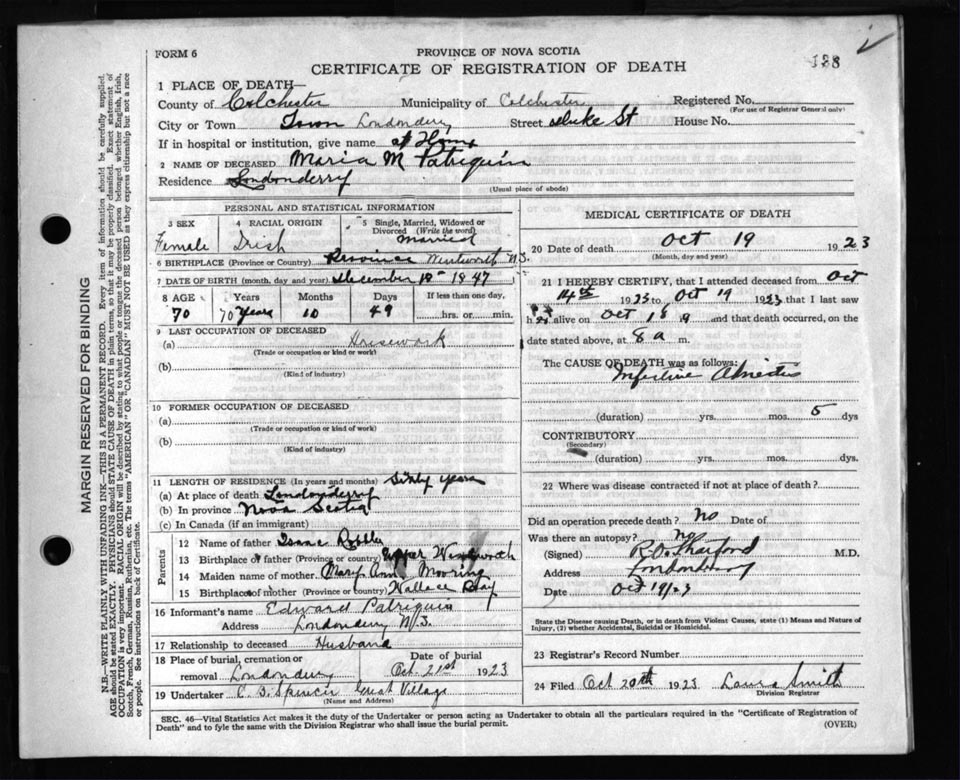 FORM 6
PROVINCE OF NOVA SCOTIA
138
CERTIFICATE OF REGISTRATION OF DEATH
1 PLACE OF DEATH—
County of Colchester Municipality of Colchester Registered No.
(For use of Registrar General only)
City or Town Town Londonderry Street Duke St House No.
If in hospital or institution, give name at Home
2 NAME OF DECEASED Maria M Patriquin
Residence Londonderry
(Usual place of abode)
PERSONAL AND STATISTICAL INFORMATION
3 SEX 4 RACIAL ORIGIN 5 Single, Married, Widowed or Divorced (Write the word)
Female Irish Married
6 BIRTHPLACE (Province or Country) Province Wentworth N.S.
7 DATE OF BIRTH (month, day and year) December 1847
8 AGE Years Months Days If less than one day,
70 70 years 10 49 hrs. or min.
9 LAST OCCUPATION OF DECEASED
(a) Housework
(Trade or occupation or kind of work)
(b)
(Kind of industry)
10 FORMER OCCUPATION OF DECEASED
(a)
(Trade or occupation or kind of work)
(b)
(Kind of industry)
11 LENGTH OF RESIDENCE (In years and months) Sixty years
(a) At place of death Londonderry
(b) In province Nova Scotia
(c) In Canada (if an immigrant)
Parents
12 Name of father Isaac
13 Birthplace of father (Province or country) Upper Wentworth
14 Maiden name of mother Mary Ann Mooring
15 Birthplace of mother (Province or country) Wallace Bay
16 Informant's name Edward Patriquin
Address Londonderry N.S.
17 Relationship to deceased Husband
18 Place of burial, cremation or removal Londonderry Date of burial Oct. 21st 1923
19 Undertaker C. B. Spencer Great Village
(Name and Address)
MEDICAL CERTIFICATE OF DEATH
20 Date of death Oct 19 1923
(Month, day and year)
21 I HEREBY CERTIFY, that I attended deceased from Oct
14th 1923 to Oct 19 1923 that I last saw
h er alive on Oct 18 and that death occurred, on the
date stated above, at 8 a m.
The CAUSE OF DEATH was as follows:
(duration) yrs. mos. 5 dys
CONTRIBUTORY
(Secondary)
(duration) yrs. mos. dys.
22 Where was disease contracted if not at place of death?
Did an operation precede death? No Date of
Was there an autopsy? No
(Signed) M.D.
Address Londonderry
Date Oct 19/23
State the Disease causing Death, or in death from Violent Causes, state (1) Means and Nature of Injury, (2) whether Accidental, Suicidal or Homicidal.
23 Registrar's Record Number
24 Filed Oct 20th 1923 Laura Smith
Division Registrar
SEC. 46—Vital Statistics Act makes it the duty of the Undertaker or person acting as Undertaker to obtain all the particulars required in the "Certificate of Registration of
Death" and to fyle the same with Division Registrar who shall issue the burial permit.
(OVER)
MARGIN RESERVED FOR BINDING
N.B.—WRITE PLAINLY WITH UNFADING INK—THIS IS A PERMANENT RECORD. Every item of information should be carefully supplied.
AGE should be stated EXACTLY. PHYSICIANS should STATE CAUSE OF DEATH in plain terms, so that it may be properly classified. Exact statement of
OCCUPATION is very important. RACIAL ORIGIN will be described by stating to what people or tongue the deceased person belonged whether English, Irish,
Scotch, French, German, Russian, Ruthenian, etc. The terms "AMERICAN" OR "CANADIAN" MUST NOT BE USED as they express citizenship but not a race
or people. See instructions on back of Certificate.